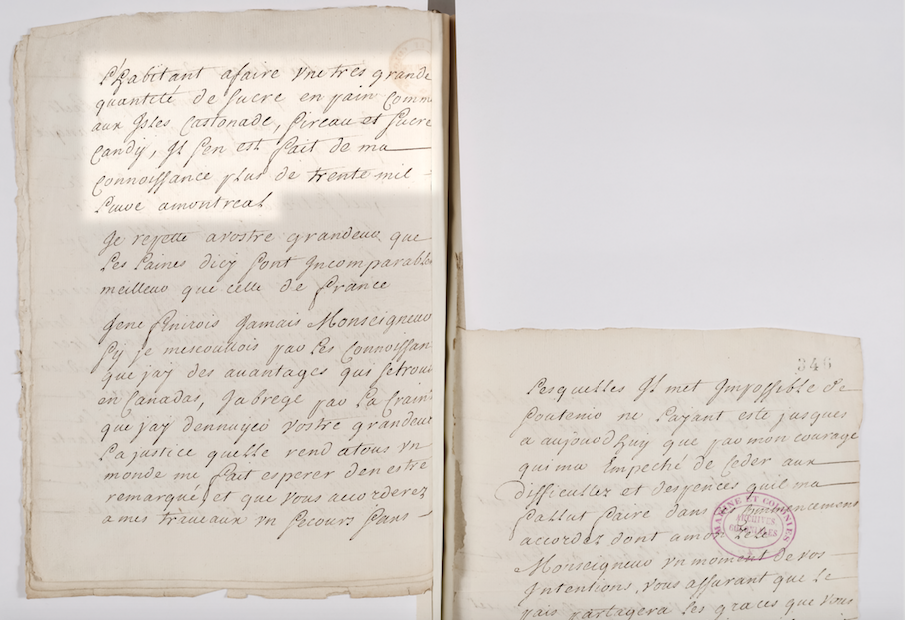 l'habitant afaire vne tres grande
quantité de sucre en pain Comme
aux Isles Castonade, Sireau et sucre
Candy, Il sen est fait de ma
Connoissance plus de trente mil
Livre amontreal
Je repette avostre grandeur que
les laines dicy sont Incomparable
meilleur que celle de France
Jene finirois Jamais Monseigneur
sy je mescoutois par les Connoissan
que jay des auantages qui setrouu
en Canadas, Jabrege par la Crainte
que jay dennuyer vostre grandeur
La justice quelle rend atous vn
monde me fait esperer den estre
remarqué et que Vous accorderez
ames travaux vn secours sans
346
lesquelles Il met Impossible de
soutenir ne layant esté jusques
a aujourdhuy que par mon courage
qui ma Empeché de Ceder aux
difficultez et despences quil ma
fallut faire dans
accordez dont amon Zele
Monseigneur vn moment de vos
Intentions, vous assurant que le
pais partagera les graces que Vous
MARINE ET COLONIES
ARCHIVES
COLONIALES